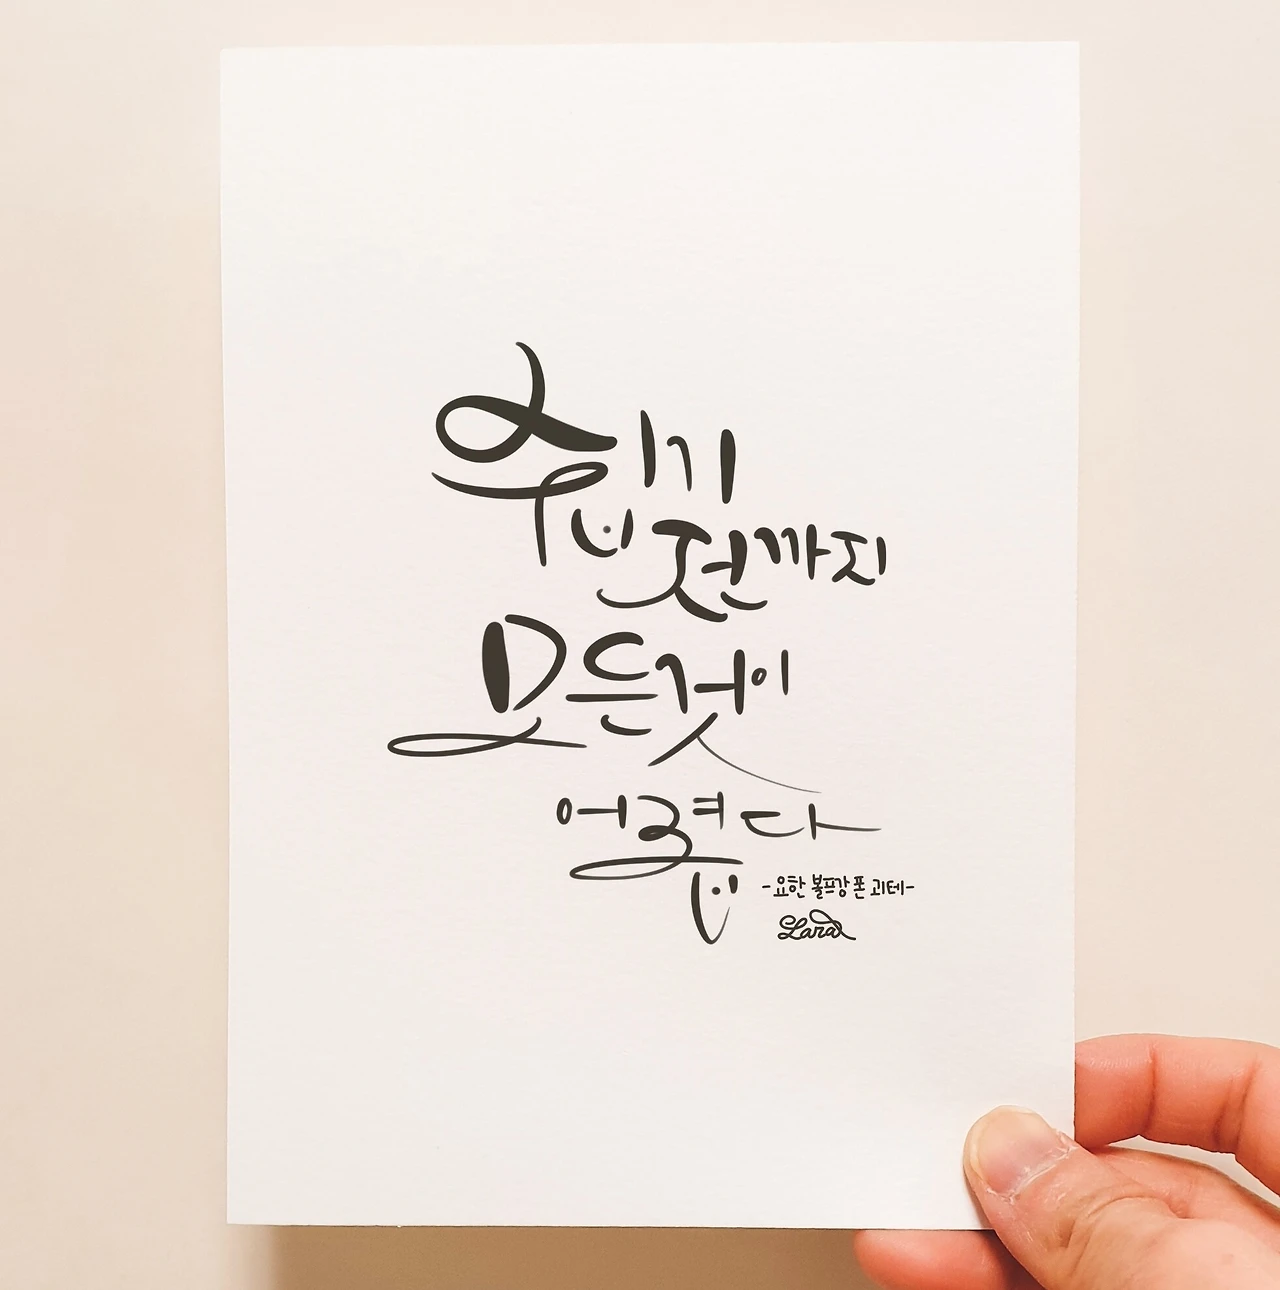 쉽기
전까지
모든것이
어렵다
-요한 볼프강 폰 괴테-
Lara